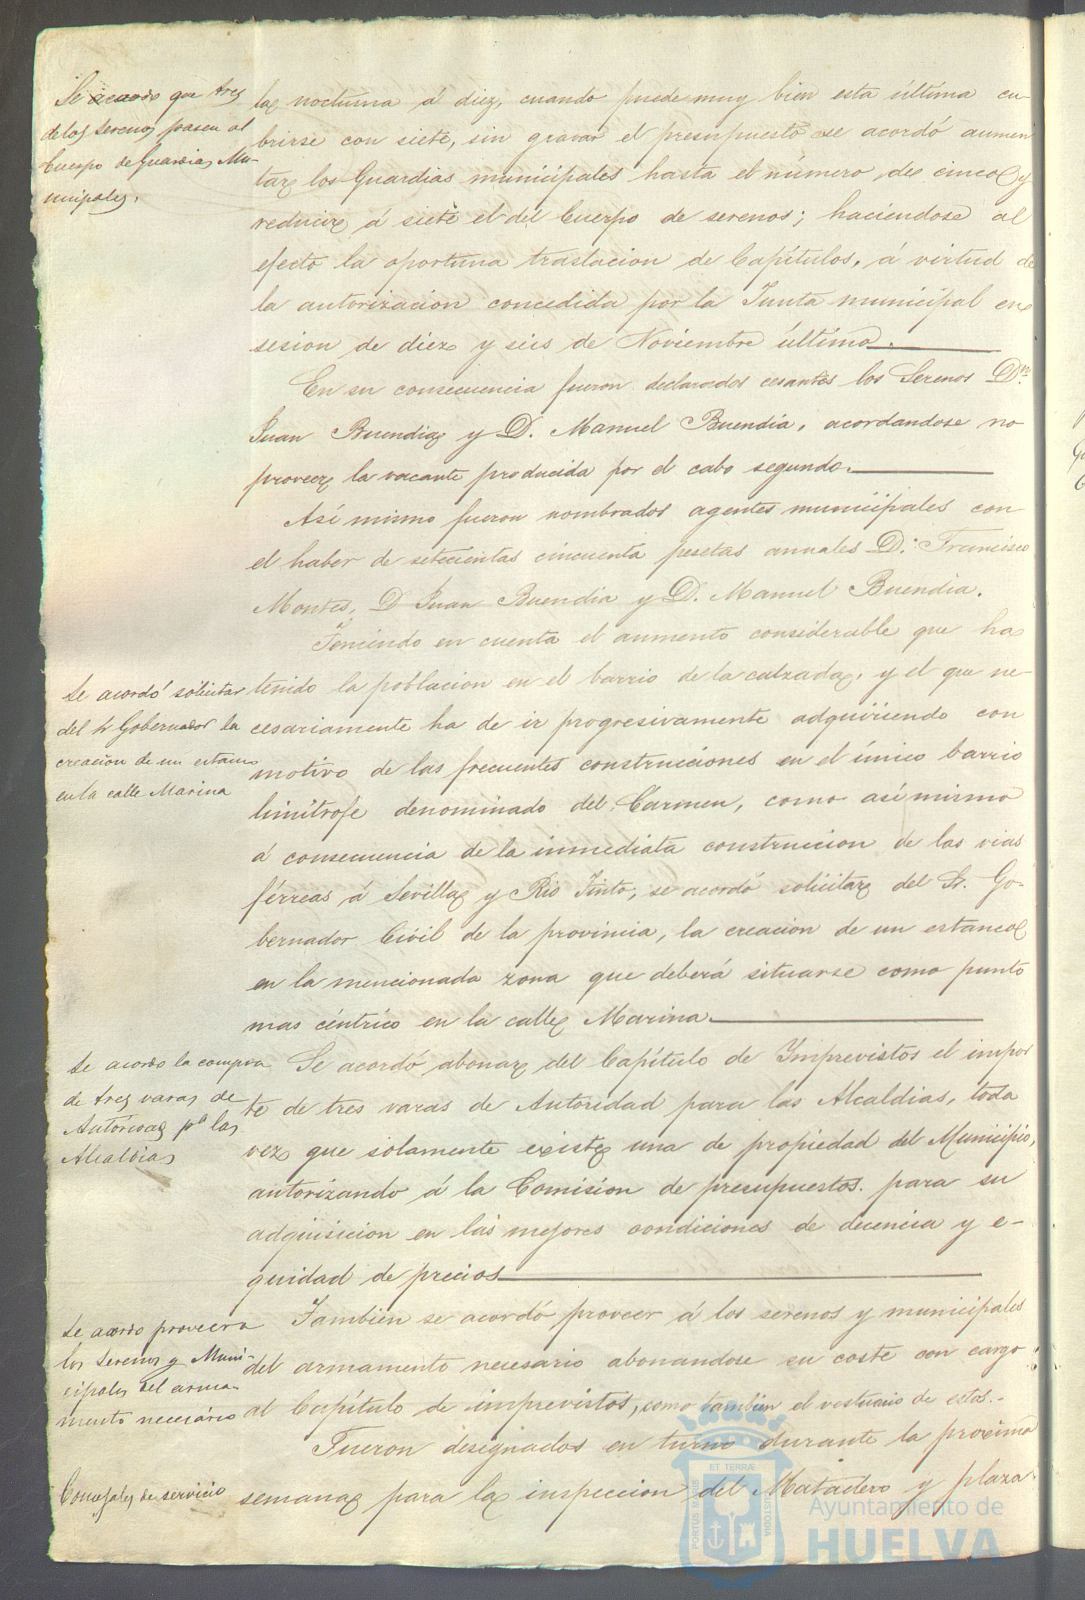 Se acordo que tres
de los serenos pasen al
Cuerpo de Guardias Mu-
nicipales.
la nocturna á diez, cuando puede muy bien esta última cu-
brirse con siete, sin gravar el presupuesto se acordó aumen
tar los Guardias municipales hasta el número de cinco y
reducir á siete el del Cuerpo de serenos; haciendose al
efecto la oportuna traslacion de Capítulos, á virtud de
la autorizacion concedida por la Junta municipal en
sesion de diez y seis de Noviembre último.
En su consecuencia fueron declarados cesantes los Serenos Dn
Juan Buendia y D. Manuel Buendia, acordandose no
proveer la vacante producida por el cabo segundo.
Así mismo fueron nombrados agentes municipales con
el haber de setecientas cincuenta pesetas anuales D. Francisco
Montes, D Juan Buendia y D. Manuel Buendia.
Se acordó solicitar
del Sr Gobernador la
creacion de un estanco
en la calle Marina
Teniendo en cuenta el aumento considerable que ha
tenido la poblacion en el barrio de la calzada, y el que ne-
cesariamente ha de ir progresivamente adquiriendo con
motivo de las frecuentes construcciones en el único barrio
limítrofe denominado del Carmen, como así mismo
á consecuencia de la inmediata construccion de las vias
férreas á Sevilla y Rio Tinto, se acordó solicitar del Sr. Go-
bernador Civil de la provincia, la creacion de un estanco
en la mencionada zona que deberá situarse como punto
mas céntrico en la calle Marina.
Se acordo la compra
de tres varas de
Autoridad pa las
Alcaldias
Se acordó abonar del Capítulo de Imprevistos el impor
te de tres varas de Autoridad para las Alcaldias, toda
vez que solamente existe una de propiedad del Municipio,
autorizando á la Comision de presupuestos para su
adquisicion en las mejores condiciones de decencia y e-
quidad de precios
Se acordo proveer a
los Serenos y Muni-
cipales del arma-
mento necesario
Tambien se acordó proveer á los serenos y municipales
del armamento necesario abonandose su coste con cargo
al Capítulo de imprevistos, como tambien el vestuario de estos.-
Concejales de servicio
Fueron designados en turno durante la proxima
semana para la inspeccion del Matadero y plaza
PORTUS MARIS ET TERRÆ CUSTODIA
Ayuntamiento de
HUELVA